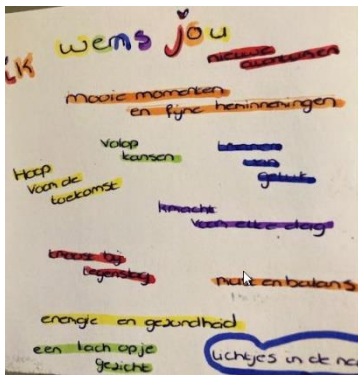 ik wens jou
nieuwe
avonturen
mooie momenten
en fijne herinneringen
volop
kansen
bronnen
van
geluk
Hoop
voor de
toekomst
kracht
voor elke dag
troost bij
tegenslag
rust en balans
energie en gezondheid
een lach op je
gezicht
lichtjes in de na